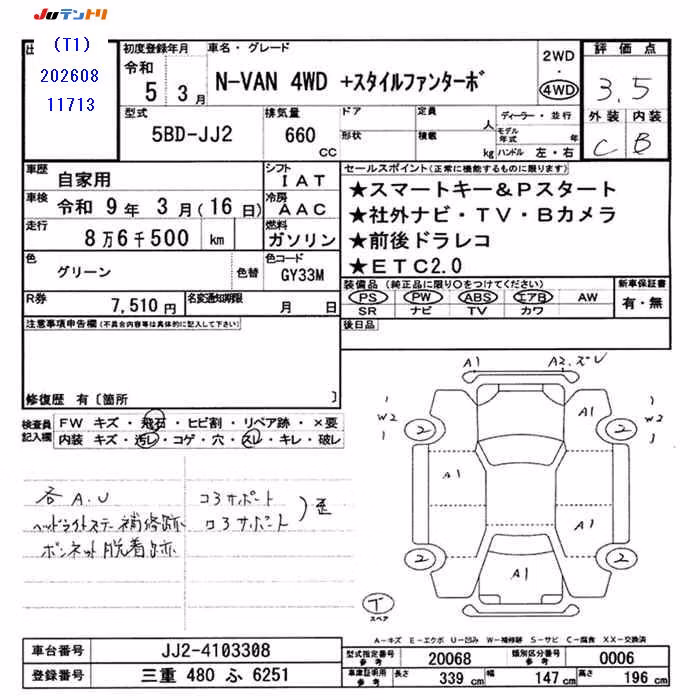 JUテントリ
(T1)
202608
11713
初度登録年月
令和
5 3 月
車名・グレード
N-VAN 4WD +スタイルファンターボ
2WD
4WD
評価点
3.5
外装 内装
C B
型式
5BD-JJ2
排気量
660
CC
ドア
形状
定員
人
積載
kg
ディーラー・並行
モデル年式 年
ハンドル 左・右
車歴
自家用
シフト
IAT
車検
令和 9年 3月(16日)
冷房
AAC
走行
8万6千500 km
燃料
ガソリン
色
グリーン
色替
色コード
GY33M
R券
7,510円
名変通知期限
月 日
セールスポイント(正常に機能するものに限ります。)
★スマートキー&Pスタート
★社外ナビ・TV・Bカメラ
★前後ドラレコ
★ETC2.0
装備品(純正品に限り○をつけてください)
PS PW ABS エアB AW
SR ナビ TV カワ
新車保証書
有・無
後日品
注意事項申告欄(不具合内容等は具体的に記入して下さい)
修復歴 有〔箇所 〕
検査員記入欄
FW キズ・飛石・ヒビ割・リペア跡・×要
内装 キズ・汚レ・コゲ・穴・スレ・キレ・破レ
各A.U
ヘッドライトステー補修跡
ボンネット脱着跡
コアサポート
ロアサポート
)歪
A1
A2.ズレ
W2
A1
W2
2
2
A1
A1
2
2
A1
T
スペア
A-キズ E-エクボ U-凹み W-補修跡 S-サビ C-腐食 XX-交換済
車台番号
JJ2-4103308
型式指定番号参考
20068
類別区分番号参考
0006
登録番号
三重 480 ふ 6251
車庫証明用参考
長さ
339 cm
幅
147 cm
高さ
196 cm